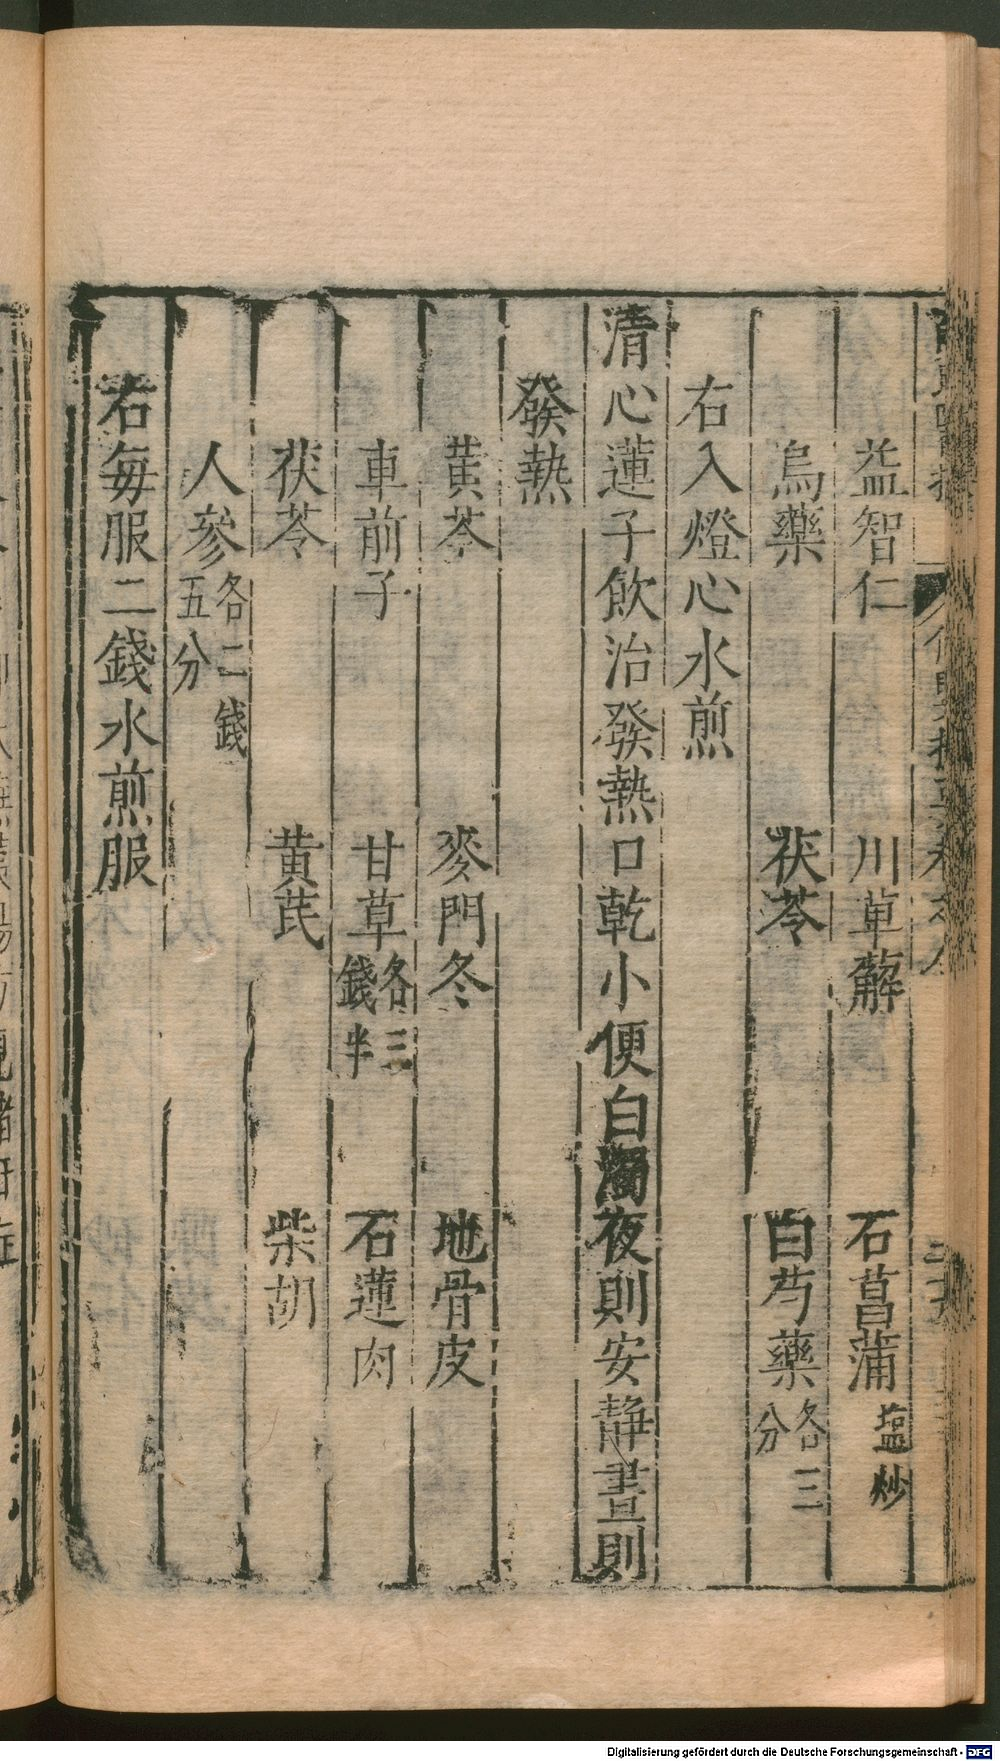 益智仁　川萆薢　石菖蒲塩炒
烏藥　茯苓　白芍藥各三分
右入燈心水煎
清心蓮子飲治發熱口乾小便白濁夜則安静晝則
發熱
黄芩　麥門冬　地骨皮
車前子　甘草各三錢半　石蓮肉
茯苓　黄芪　柴胡
人參各二錢五分
右每服二錢水煎服
Digitalisierung gefördert durch die Deutsche Forschungsgemeinschaft - DFG